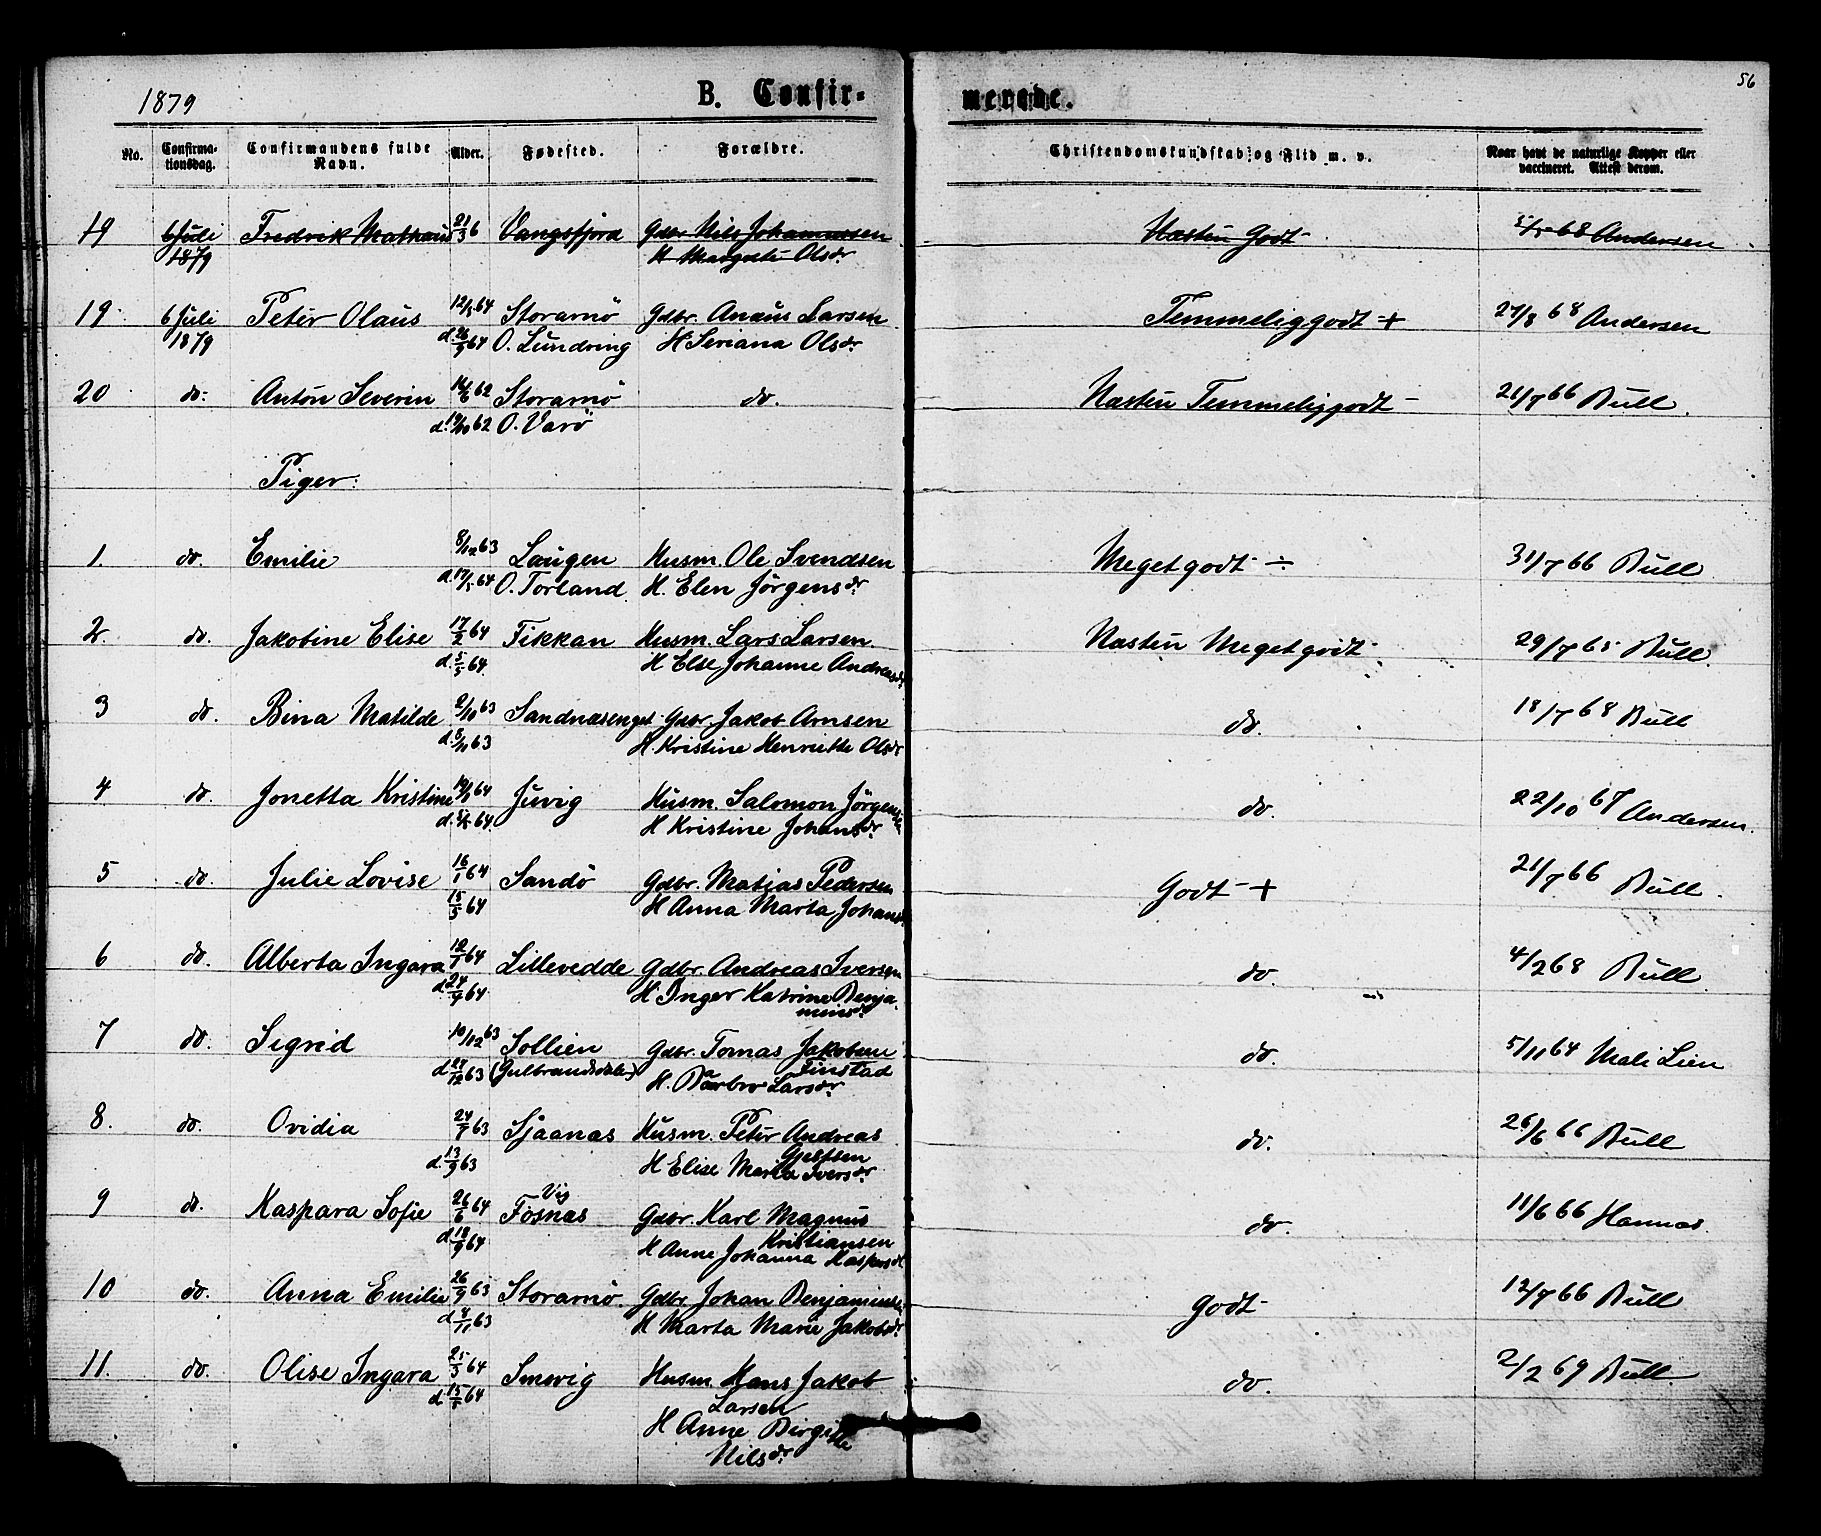 56
1879 B. Confir- merede.
No. Confirma- Confirmandens fulde Alder. Fødested. Forældre. Christendomskundskab og Flid m. v. Naar havt de naturlige Kopper eller
tionsdag. Navn. vaccineret. Attest derom.
19 6 Juli Fredrik Mathæus 21/3 6 Vangsfjord Gdbr Nils Johannessen Næsten Godt 68 Andersen
1879 H Margrete Olsdr
19 6 Juli Peter Olaus 12/5 64 Storarnö Gdbr. Anæus Larsen Temmeliggodt + 27/8 68 Andersen
1879 d. 64 O. Lundring H Seriana Olsdr.
20 do. Anton Severin 62 Storarnö do. Næsten Temmeliggodt 21/7 66 Bull.
d. 19/10 62 O. Varö
Piger:
1. do. Emilie 8/12 63 Laugen Husm. Ole Svendsen Megetgodt ÷ 31/7 66 Bull
d. 17/5 64 O. Torland. H. Elen Jörgensdr
2. do. Jakobine Elise 17/2 64 Fikkan Husm. Lars Larsen Næsten Megetgodt 29/7 65 Bull.
d. 5/5 64. H Else Johanne Andreasdr
3 do. Bina Matilde 2/10 63 Sandnæsenget Gdbr. Jakob Arnsen do. 18/7 68 Bull
d. 8/11 63 H. Kristine Henriette Olsdr
4 do. Jonetta Kristine 64 Juvig Husm. Salomon Jörgensen do. 22/10 67 Andersen.
d. 64. H Kristine Johansdr.
5 do. Julie Lovise 16/1 64 Sandö Gdbr. Matias Pedersen Godt + 21/7 66 Bull.
15/5 64 H Anna Marta Johansdr
6 do. Alberta Ingara 64 Lillevedde Gdbr. Andreas Iversen do. 4/2 68 Bull
d. 24/9 64 H Inger Katrine Benja
minsdr
7 do. Sigrid 10/12 63 Sollien Gdbr. Tomas Jakobsen do. 5/11 64 Mali Lien
d. 27/12 63 (Gulbrandsdalen) Finstad
H. Barbro Larsdr.
8. do. Ovidia 24/7 63 Sjaanæs Husm. Peter Andreas do. 26/6 66 Bull
d. 13/9 63 Gjeltsen
H Elise Marta Iversdr
9 do. Kaspara Sofie 26/6 64 Vig Gdbr. Karl Magnus do. 11/6 66 Hannas.
d. 18/9 64 Fosnæs Kristiansen
H Anne Johanna Kaspersdr
10 do. Anna Emilie 26/9 63 Storarnö. Gdbr. Johan Benjaminsen Godt 12/7 66 Bull
d. 8/11 63 H Marta Marie Jakobsdr
11. do. Olise Ingara 64 Smevig Husm. Hans Jakob do. 2/2 69 Bull
d. 15/5 64 Larsen
H Anne Birgitte
Nilsdr.